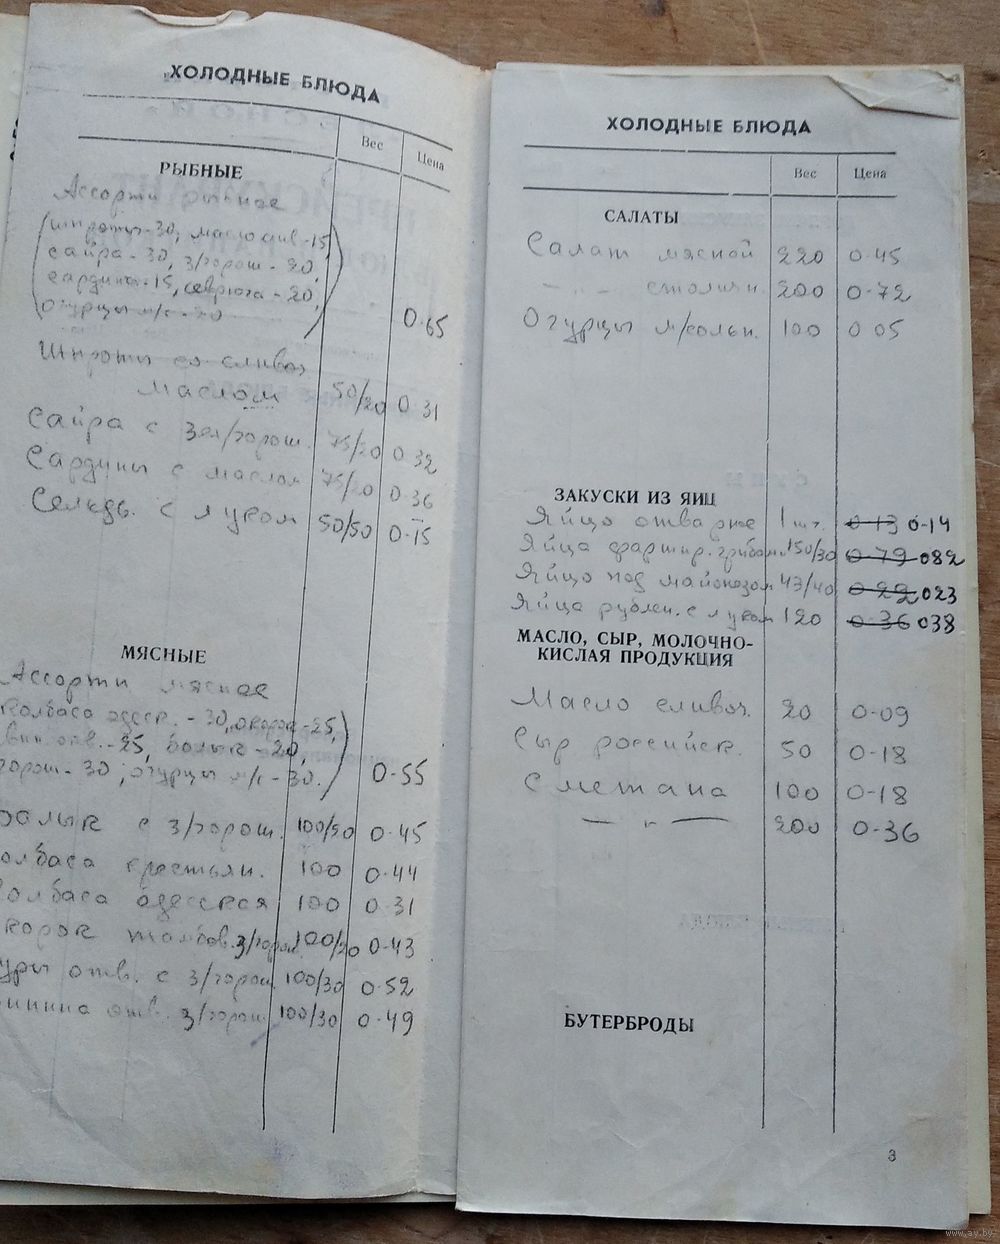 ХОЛОДНЫЕ БЛЮДА
Вес Цена
РЫБНЫЕ
Ассорти рыбное
(шпроты-30, масло слив-15,
сайра-30, з/горош-20,
сардины-15, севрюга-20,
огурцы м/с-20) 0-65
Шпроты со сливоч
маслом 50/20 0-31
Сайра с зел/горош. 75/20 0-32
Сардины с маслом 75/20 0-36
Сельдь с луком 50/50 0-15
МЯСНЫЕ
Ассорти мясное
колбаса одесск.-30, окорок-25,
отв.-25, балык-20,
горош-30, огурцы м/с-30.) 0-55
балык с з/горош. 100/50 0-45
олбаса крестьян. 100 0-44
Колбаса одесская 100 0-31
корок тамбов. з/горош. 100/20 0-43
уры отв. с з/горош 100/30 0-52
инина отв. з/горош 100/30 0-49
ХОЛОДНЫЕ БЛЮДА
Вес Цена
САЛАТЫ
Салат мясной 220 0-45
-"- столичн. 200 0-72
Огурцы м/сольн. 100 0 05
ЗАКУСКИ ИЗ ЯИЦ
Яйцо отварное 1 шт. 0-13 0-14
Яйца фаршир. грибами 150/30 0-79 082
Яйцо под майонезом 43/40 0-22 023
Яйца рублен. с луком 120 0-36 038
МАСЛО, СЫР, МОЛОЧНО-
КИСЛАЯ ПРОДУКЦИЯ
Масло сливоч. 20 0-09
Сыр российск. 50 0-18
Сметана 100 0-18
— " — 200 0-36
БУТЕРБРОДЫ
3
www.ay.by